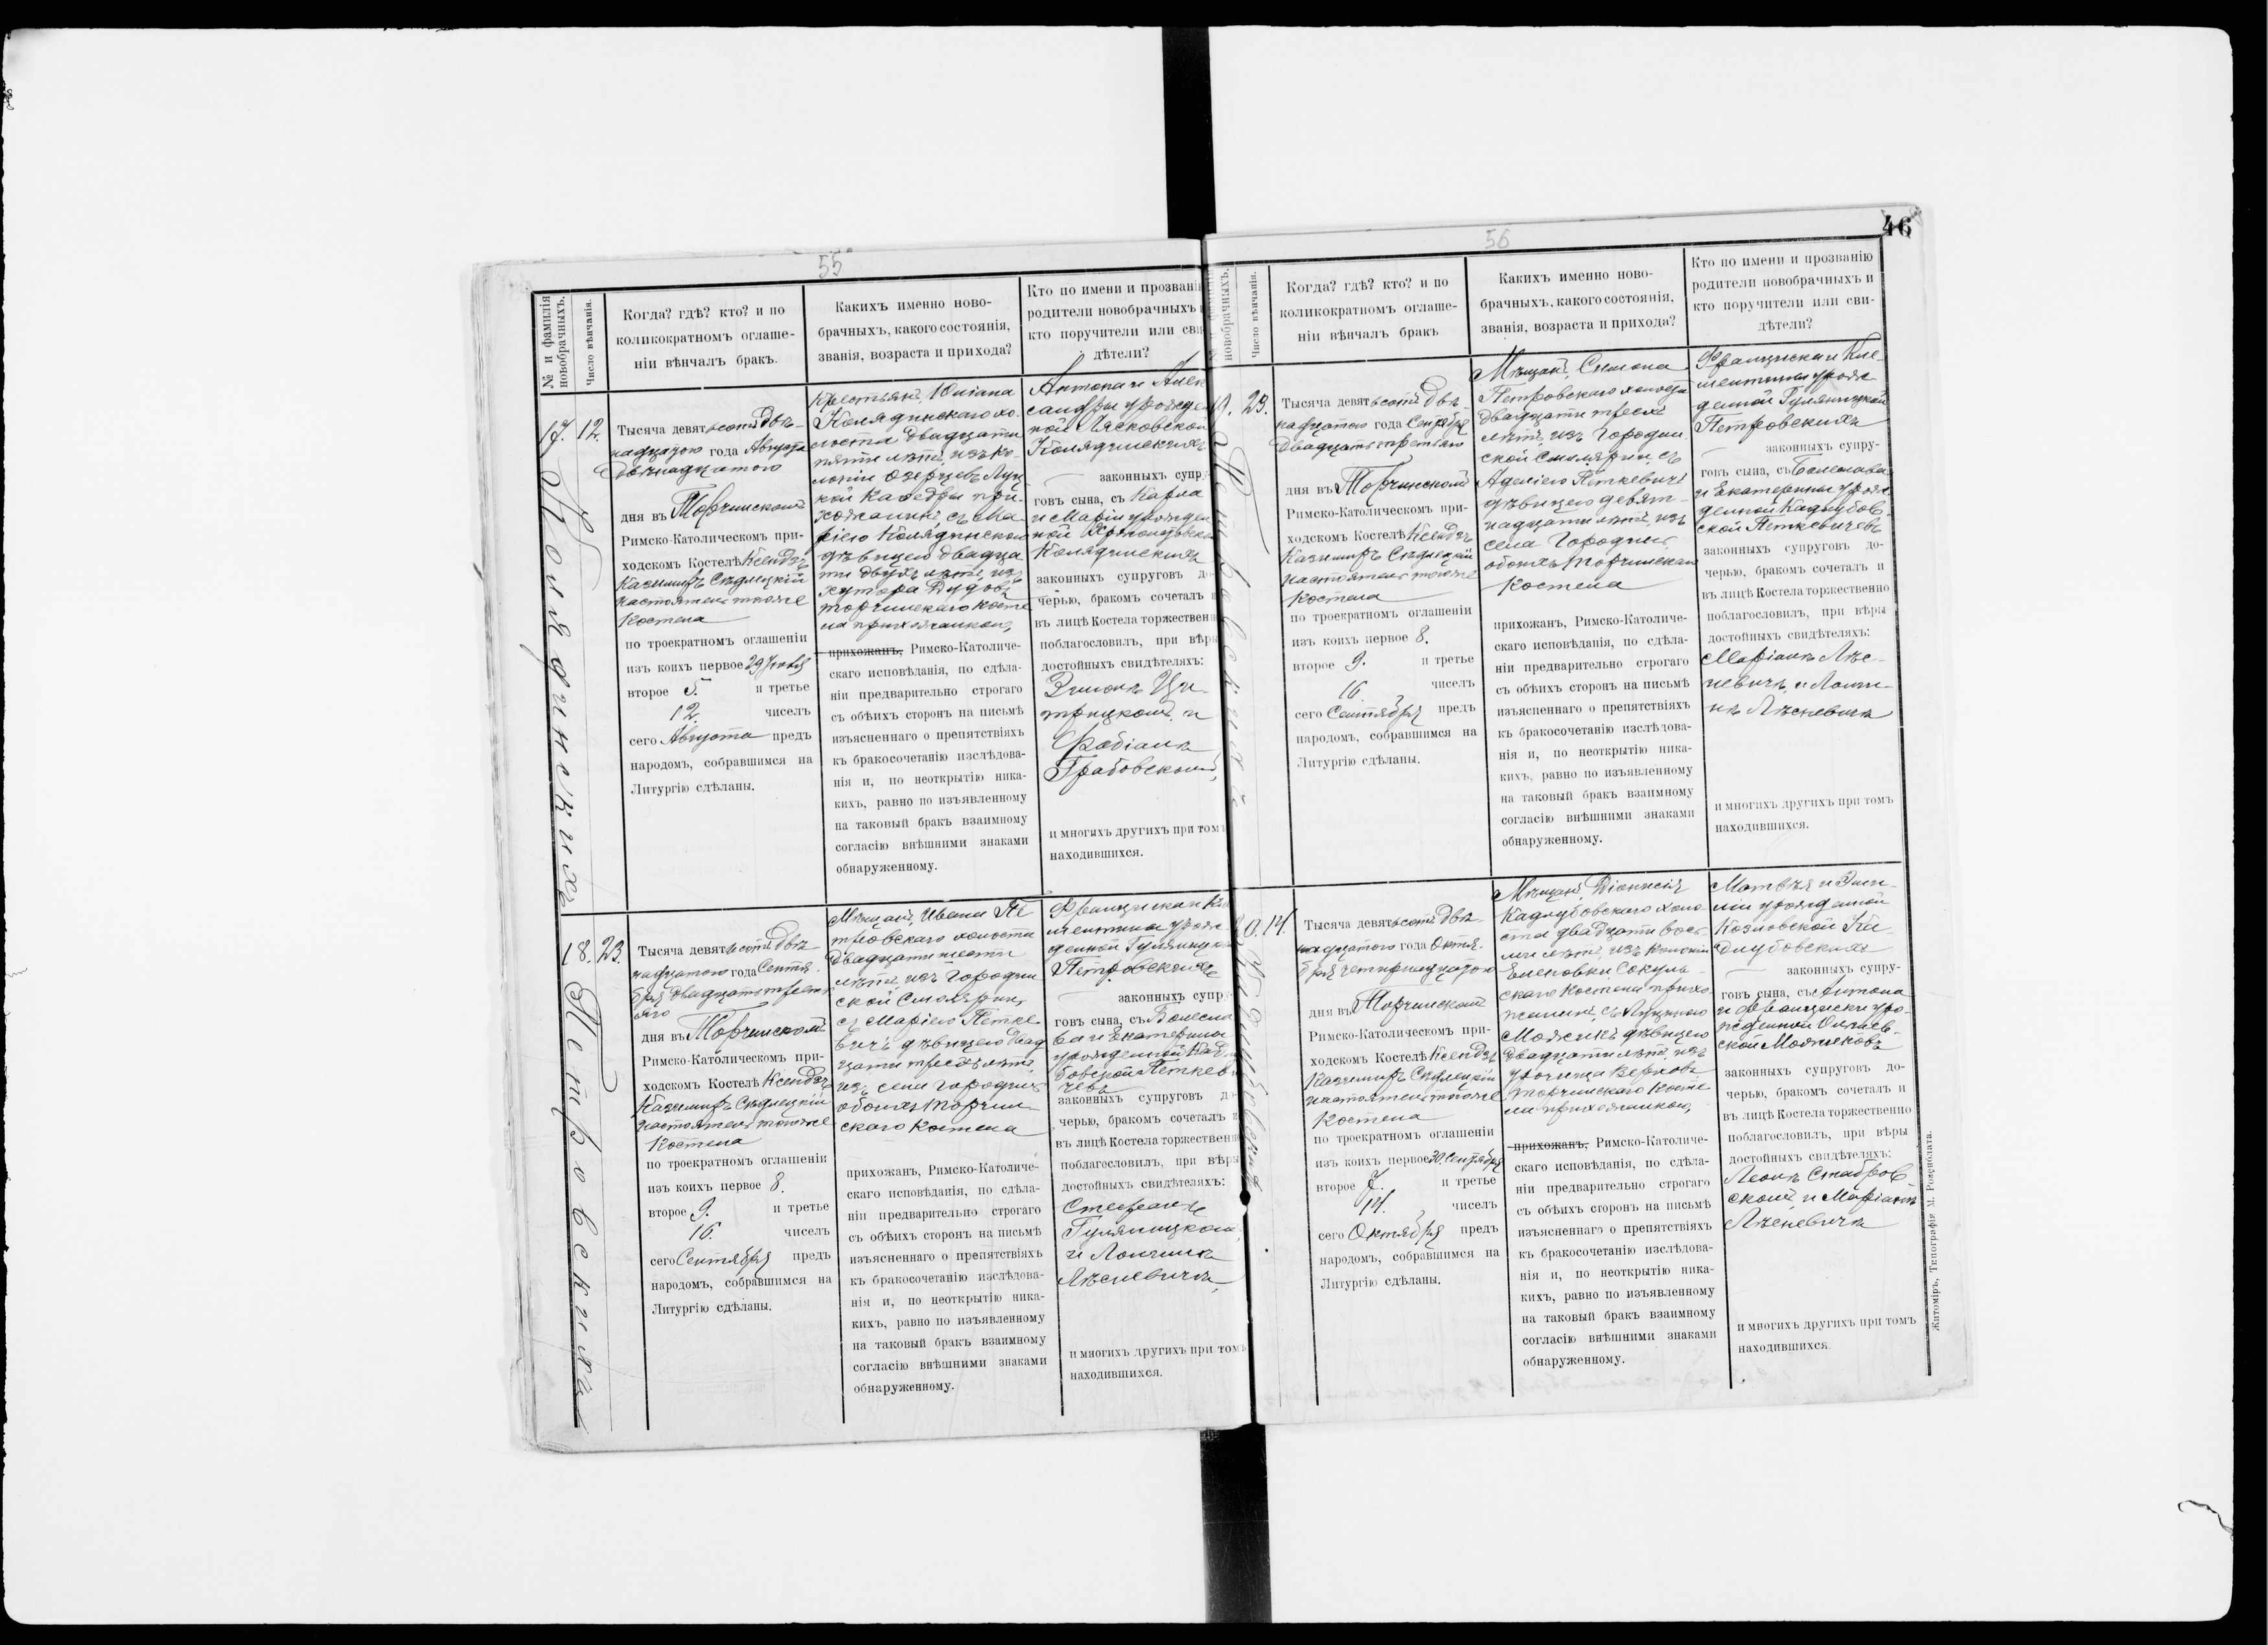 55
№ и фамилія
новобрачныхъ.
Число вѣнчанія.
Когда? гдѣ? кто? и по
коликократномъ оглаше-
ніи вѣнчалъ бракъ.
Какихъ именно ново-
брачныхъ, какого состоянія,
званія, возраста и прихода?
Кто по имени и прозванію
родители новобрачныхъ и
кто поручители или сви-
дѣтели?
17.
12.
Колядинскихъ
Тысяча девятьсотъ двѣ-
надцатого года Августа
двѣнадцатого
дня въ Торчинскомъ
Римско-Католическомъ при-
ходскомъ Костелѣ Ксендзъ
Казимиръ Сѣдлецкій
настоятель тогоже
Костела
по троекратномъ оглашеніи
изъ коихъ первое 29 Іюля
второе 5. и третье
12. чиселъ
сего Августа предъ
народомъ, собравшимся на
Литургію сдѣланы.
Крестьян. Юліана
Колядинскаго хо-
лоста двадцати
пяти лѣтъ, изъ ко-
лоніи Озерцевъ Луц
кой Каѳедры при-
хожанинъ, съ Ма-
ріею Колядинскою
дѣвицею двадца
ти двухъ лѣтъ, изъ
хутора Дудовъ
торчинскаго косте
ла прихожанкою,
прихожанъ, Римско-Католиче-
скаго исповѣданія, по сдѣла-
ніи предварительно строгаго
съ обѣихъ сторонъ на письмѣ
изъясненнаго о препятствіяхъ
къ бракосочетанію изслѣдова-
нія и, по неоткрытію ника-
кихъ, равно по изъявленному
на таковый бракъ взаимному
согласію внѣшними знаками
обнаруженному.
Антона и Алек
сандры урожде
ной Лясковской
Колядинскихъ
законныхъ супру
говъ сына, съ Карла
и Маріи урожден
ной
Колядинскихъ
законныхъ супруговъ до
черью, бракомъ сочеталъ и
въ лицѣ Костела торжественно
поблагословилъ, при вѣры
достойныхъ свидѣтеляхъ:
и
Фабіанъ
Грабовскомъ,
и многихъ другихъ при томъ
находившихся.
18.
23.
Петровскихъ
Тысяча девятьсотъ двѣ
надцатого года Сентя-
бря двадцать треть
яго
дня въ Торчинскомъ
Римско-Католическомъ при-
ходскомъ Костелѣ Ксендзъ
Казимиръ Сѣдлецкій
настоятель тогоже
Костела
по троекратномъ оглашеніи
изъ коихъ первое 8.
второе 9. и третье
16. чиселъ
сего Сентября предъ
народомъ, собравшимся на
Литургію сдѣланы.
Мѣщан. Ивана Пе
тровскаго холоста
двадцати шести
лѣтъ, изъ Городин
ской Смолярни,
съ Маріею Петке
вичъ дѣвицею двад
цати трехъ лѣтъ,
изъ села Городин
обоихъ Торчин-
скаго костела
прихожанъ, Римско-Католиче-
скаго исповѣданія, по сдѣла-
ніи предварительно строгаго
съ обѣихъ сторонъ на письмѣ
изъясненнаго о препятствіяхъ
къ бракосочетанію изслѣдова-
нія и, по неоткрытію ника-
кихъ, равно по изъявленному
на таковый бракъ взаимному
согласію внѣшними знаками
обнаруженному.
Францишка и Кле
ментины урож
денной Гуляницк
Петровскихъ
законныхъ супру
говъ сына, съ Болесла
ва и Екатерины
урожденной Кадлу
бовской Петкеви
чевъ
законныхъ супруговъ до
черью, бракомъ сочеталъ и
въ лицѣ Костела торжественно
поблагословилъ, при вѣры
достойныхъ свидѣтеляхъ:
Стефанъ
Гуляницкомъ
и Лонгинъ
Лѣсневичъ,
и многихъ другихъ при томъ
находившихся.
56
46
№ и фамилія
новобрачныхъ.
Число вѣнчанія.
Когда? гдѣ? кто? и по
коликократномъ оглаше-
ніи вѣнчалъ бракъ
Какихъ именно ново-
брачныхъ, какого состоянія,
званія, возраста и прихода?
Кто по имени и прозванію
родители новобрачныхъ и
кто поручители или сви-
дѣтели?
19.
23.
Петровскихъ
Тысяча девятьсотъ двѣ
надцатого года Сентября
двадцать третьяго
дня въ Торчинскомъ
Римско-Католическомъ при-
ходскомъ Костелѣ Ксендзъ
Казимиръ Сѣдлецкій
настоятель тогоже
Костела
по троекратномъ оглашеніи
изъ коихъ первое 8.
второе 9. и третье
16. чиселъ
сего Сентября предъ
народомъ, собравшимся на
Литургію сдѣланы.
Мѣщан. Симона
Петровскаго холоста
двадцати трехъ
лѣтъ, изъ Городин
ской Смолярни, съ
Аделіею Петкевичъ
дѣвицею девят-
надцати лѣтъ, изъ
села Городин,
обоихъ Торчинскаго
Костела
прихожанъ, Римско-Католиче-
скаго исповѣданія, по сдѣла-
ніи предварительно строгаго
съ обѣихъ сторонъ на письмѣ
изъясненнаго о препятствіяхъ
къ бракосочетанію изслѣдова-
нія и, по неоткрытію ника-
кихъ, равно по изъявленному
на таковый бракъ взаимному
согласію внѣшними знаками
обнаруженному.
Францишка и Кле-
ментины урож
денной Гуляницкой
Петровскихъ
законныхъ супру-
говъ сына, съ Болеслава
и Екатерины урож
денной Кадлубов-
ской Петкевичевъ
законныхъ супруговъ до-
черью, бракомъ сочеталъ и
въ лицѣ Костела торжественно
поблагословилъ, при вѣры
достойныхъ свидѣтеляхъ:
Маріанъ Лѣс-
невичъ и Лонги-
нъ Лѣсневичъ
и многихъ другихъ при томъ
находившихся.
20.
14.
Кадлубовскихъ
Тысяча девятьсотъ двѣ-
надцатого года Октя-
бря четырнадцатого
дня въ Торчинскомъ
Римско-Католическомъ при-
ходскомъ Костелѣ Ксендзъ
Казимиръ Сѣдлецкій
настоятель тогоже
Костела
по троекратномъ оглашеніи
изъ коихъ первое 30. Сентября
второе 7. и третье
14. чиселъ
сего Октября предъ
народомъ, собравшимся на
Литургію сдѣланы.
Мѣщан. Діонисія
Кадлубовскаго холо
ста двадцати вось
ми лѣтъ, изъ колоніи
Еленовки Сокуль-
скаго костела прихо
жанинъ, съ
Можеикъ дѣвицею
двадцати лѣтъ, изъ
урочища Верховъ
торчинскаго косте
ла прихожанкою,
прихожанъ, Римско-Католиче-
скаго исповѣданія, по сдѣла-
ніи предварительно строгаго
съ обѣихъ сторонъ на письмѣ
изъясненнаго о препятствіяхъ
къ бракосочетанію изслѣдова-
нія и, по неоткрытію ника-
кихъ, равно по изъявленному
на таковый бракъ взаимному
согласію внѣшними знаками
обнаруженному.
Матвѣя и Эми-
ліи урожденной
Козловской Ка-
длубовскихъ
законныхъ супру-
говъ сына, съ Антона
и Францишки уро-
жденной
ской
законныхъ супруговъ до-
черью, бракомъ сочеталъ и
въ лицѣ Костела торжественно
поблагословилъ, при вѣры
достойныхъ свидѣтеляхъ:
Леонъ Стабров-
скомъ и Маріанъ
Лѣсневичъ
и многихъ другихъ при томъ
находившихся.
Житоміръ, Типографія М. Розенблата.